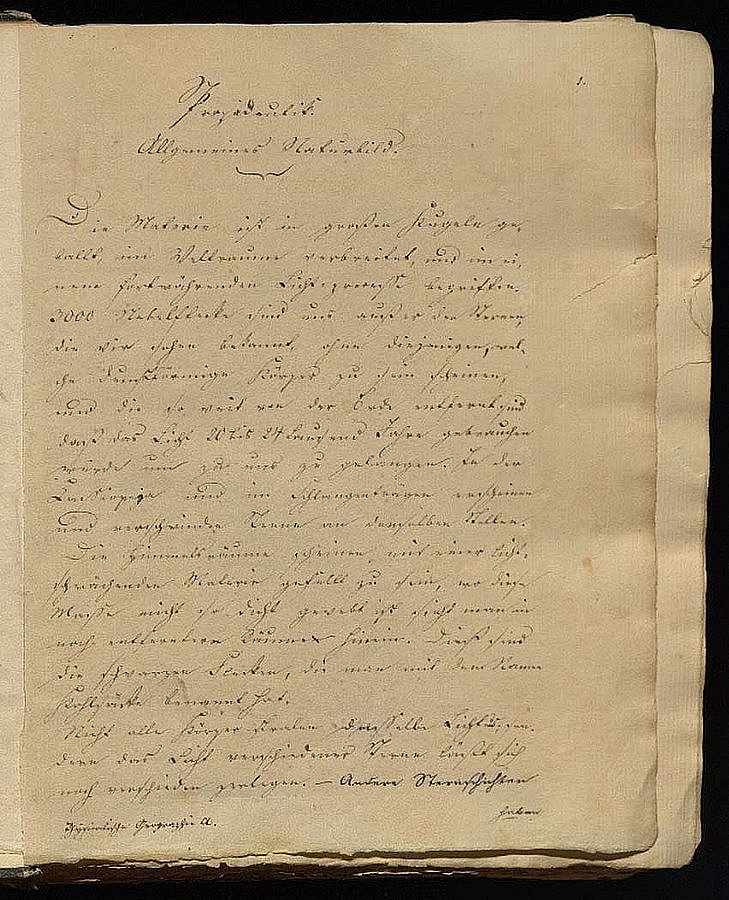 1.
Propädeutik.
Allgemeines Naturbild.
Die Materie ist in großen Kugeln ge-
ballt, im Weltraume verbreitet, und in ei-
nem fortwährenden Lichtprocesse begriffen.
3000 Nebelflecke sind uns außer den Sternen,
die wir sehen bekannt, ohne diejenigen, wel-
che dunstförmige Körper zu sein scheinen,
und die so weit von der Erde entfernt sind
daß das Licht 20 bis 24 tausend Jahre gebrauchen
würde um zu uns zu gelangen. In der
Cassiopeja und im Schlangenträger erscheinen
und verschwinden Sterne an denselben Stellen.
Die Himmelsräume scheinen mit einer Licht-
schwächenden Materie gefüllt zu sein, wo diese
Masse nicht so dicht gewebt ist sieht man in
noch entferntere Räume hinein. Dieß sind
die schwarzen Flecken, die man mit dem Namen
Kohlsäcke benannt hat.
Nicht alle Körper stralen dasselbe Licht aus, son-
dern das Licht verschiedener Sterne läßt sich
noch verschieden zerlegen. — Andere Sternschichten
haben
Physikalische Geographie A.